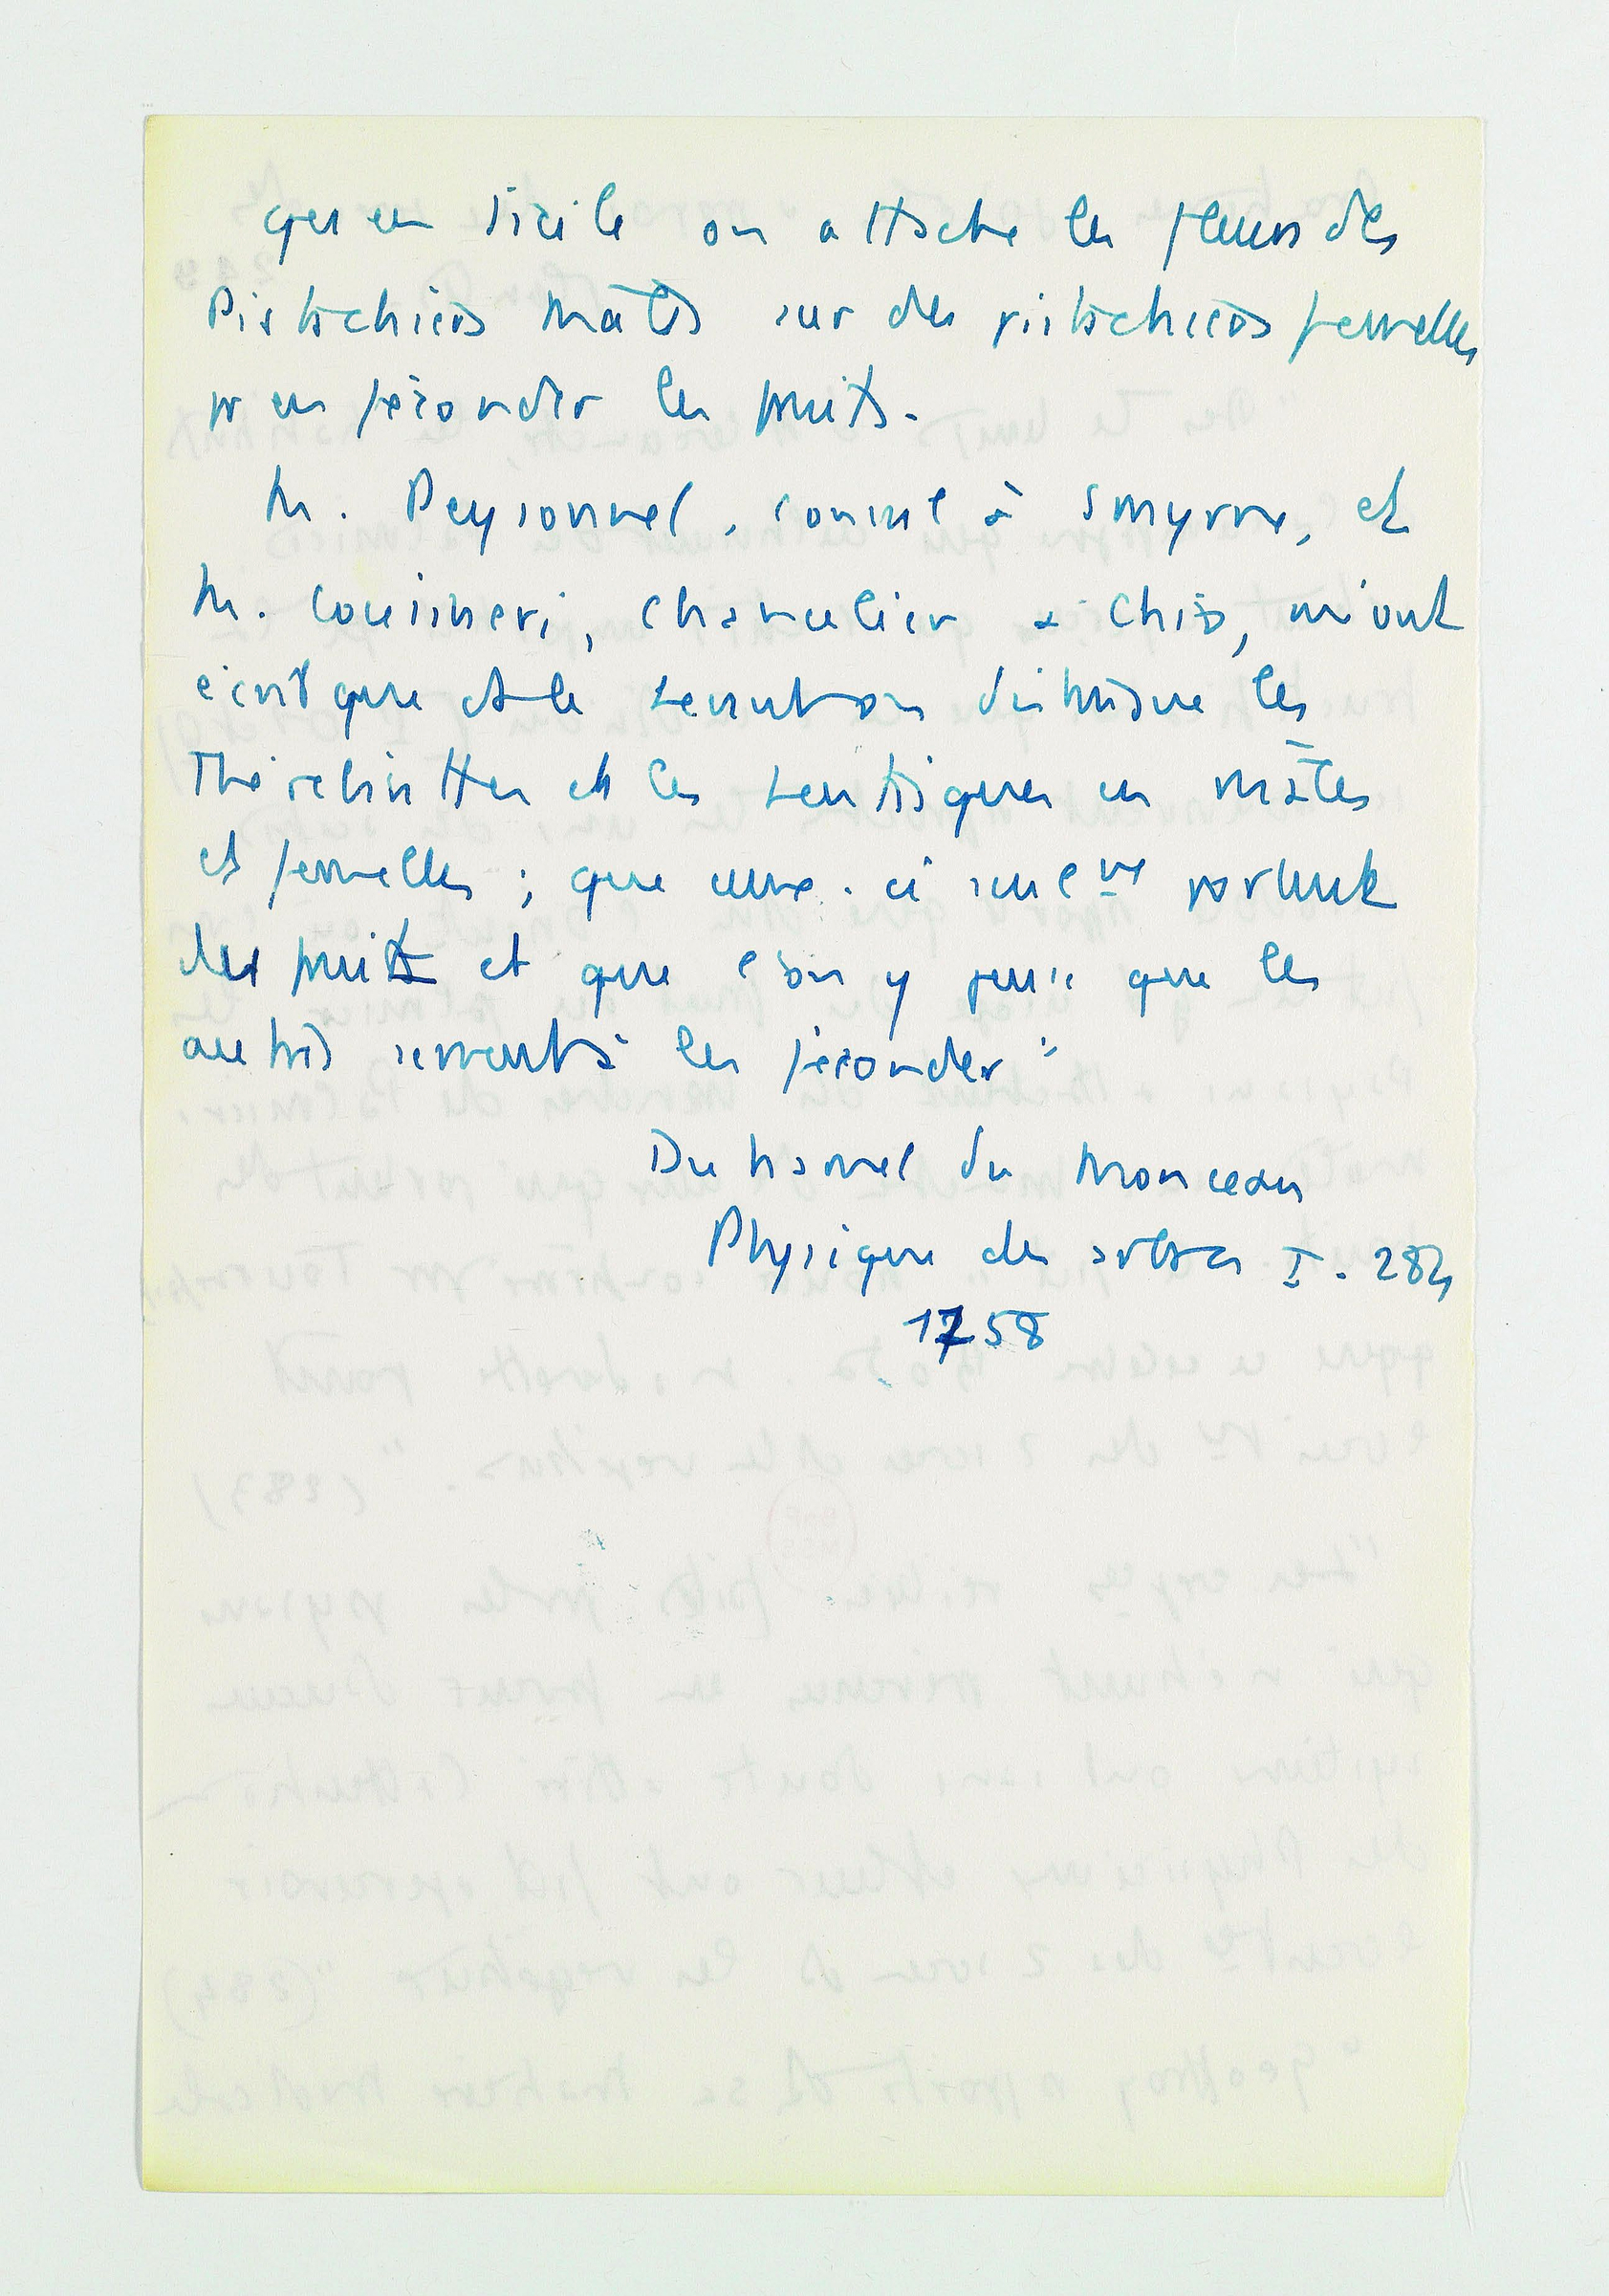 qu'en Sicile on attache les fleurs des
Pistachiers mâles sur des pistachiers femelles
pr en féconder les fruits.
M. Peyssonnel, consul à Smyrne, et
M. Cousineri, chancelier à Chio, m'ont
écrit que ds le Levant on distingue les
Thérébinthes et les Lentisques en mâles
et femelles ; que ceux-ci seulemt portent
des fruits et que l'on y pense que les
autres servent à les féconder"
Duhamel du Monceau
Physique des arbres I. 284
1758